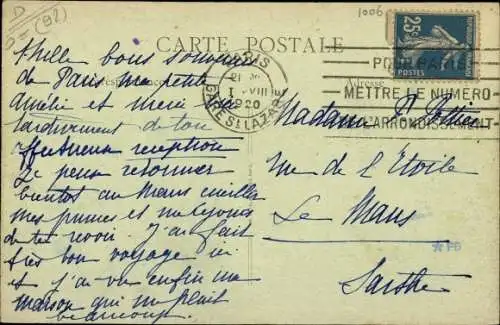 D (92)
1006
CARTE POSTALE
PARIS
21
1 VIII
20
GARE St LAZARE
25c
POSTES
POUR PARIS
METTRE LE NUMERO
L'ARRONDISSEMENT
Correspondance
Adresse
Mille bons souvenirs
de Paris ma petite
Amélie et merci
tardivement de ton
affectueuse réception
Je pense retourner
bientôt au Mans cueillir
mes prunes et me réjouis
de te revoir. J'ai fait
très bon voyage ici
et j'ai vu enfin ma
maison qui me plaît
beaucoup.
Madame
rue de l'Etoile
Le Mans
Sarthe
*PB